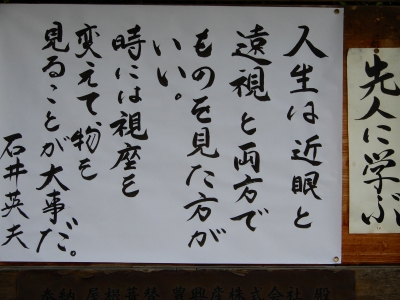 先人に学ぶ
人生は近眼と
遠視と両方で
ものを見た方が
いい。
時には視座を
変えて、物を
見ることが大事だ。
石井英夫